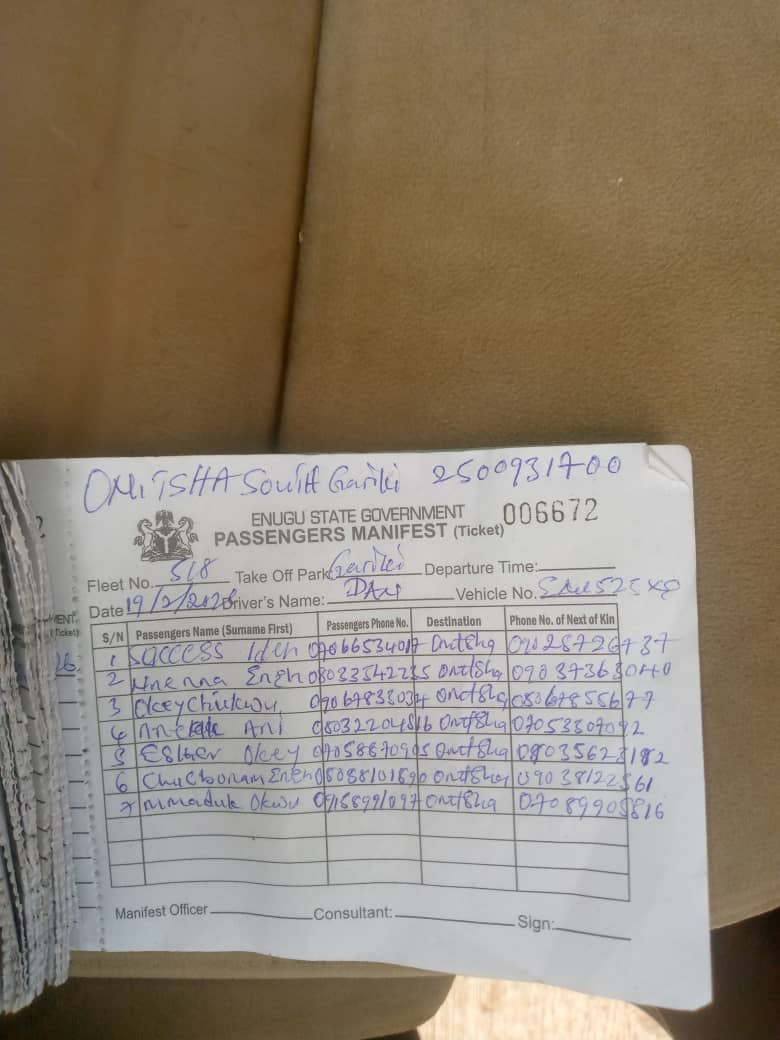 ONITSHA South Gariki 2500931700
ENUGU STATE GOVERNMENT 006672
PASSENGERS MANIFEST (Ticket)
Fleet No. 518 Take Off Park Gariki Departure Time:
Date 19/2/2026 Driver's Name: DAN Vehicle No.
S/N Passengers Name (Surname First) Passengers Phone No. Destination Phone No. of Next of Kin
1 SUCCESS 07066534017 Onitsha 09028726737
2 Nnenna Eneh 08033542235 Onitsha 09037363040
3 Okeychukwu Onitsha 08067855677
4 Ani 08032204816 Onitsha 07053307092
5 Esther Okey 07058870905 Onitsha 08035623182
6 Eneh Onitsha 09038122561
7 Mmaduk Okwu Onitsha 07089905816
Manifest Officer Consultant: Sign: